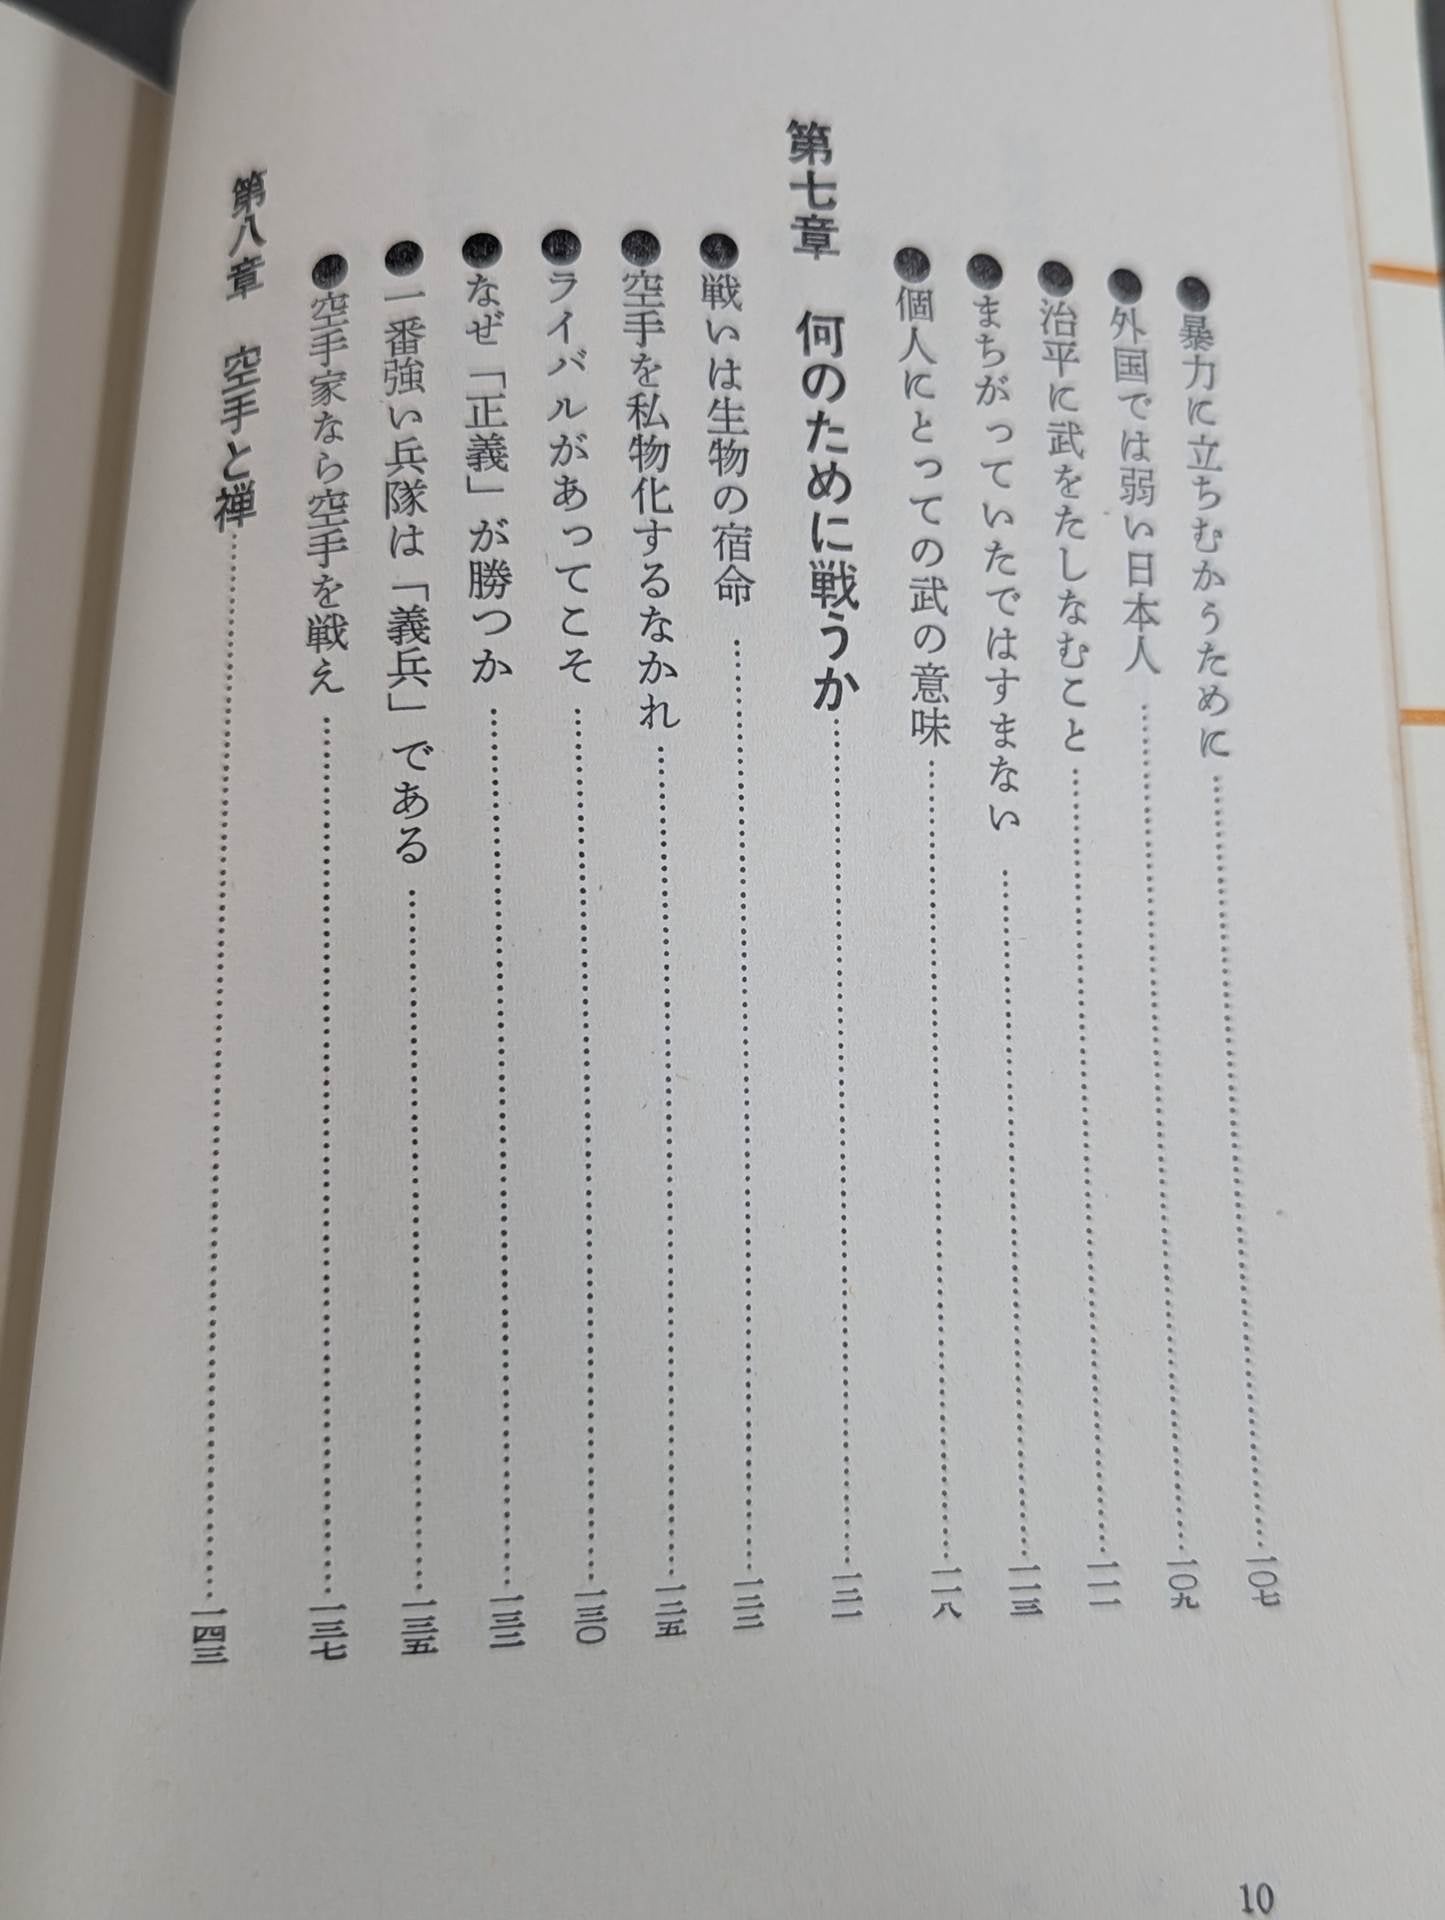 ●暴力に立ちむかうために……一〇七
●外国では弱い日本人……一〇九
●治平に武をたしなむこと……一一一
●まちがっていたではすまない……一一三
●個人にとっての武の意味……一一八
第七章　何のために戦うか……一二一
●戦いは生物の宿命……一二二
●空手を私物化するなかれ……一二五
●ライバルがあってこそ……一三〇
●なぜ「正義」が勝つか……一三二
●一番強い兵隊は「義兵」である……一三五
●空手家なら空手を戦え……一三七
第八章　空手と禅……一四三
10